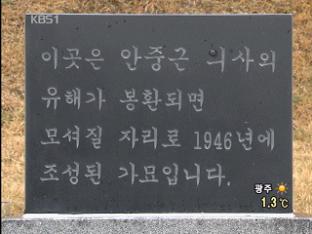 KBS1
이곳은 안중근 의사의
유해가 봉환되면
모셔질 자리로 1946년에
조성된 가묘입니다.
광주
1.3℃